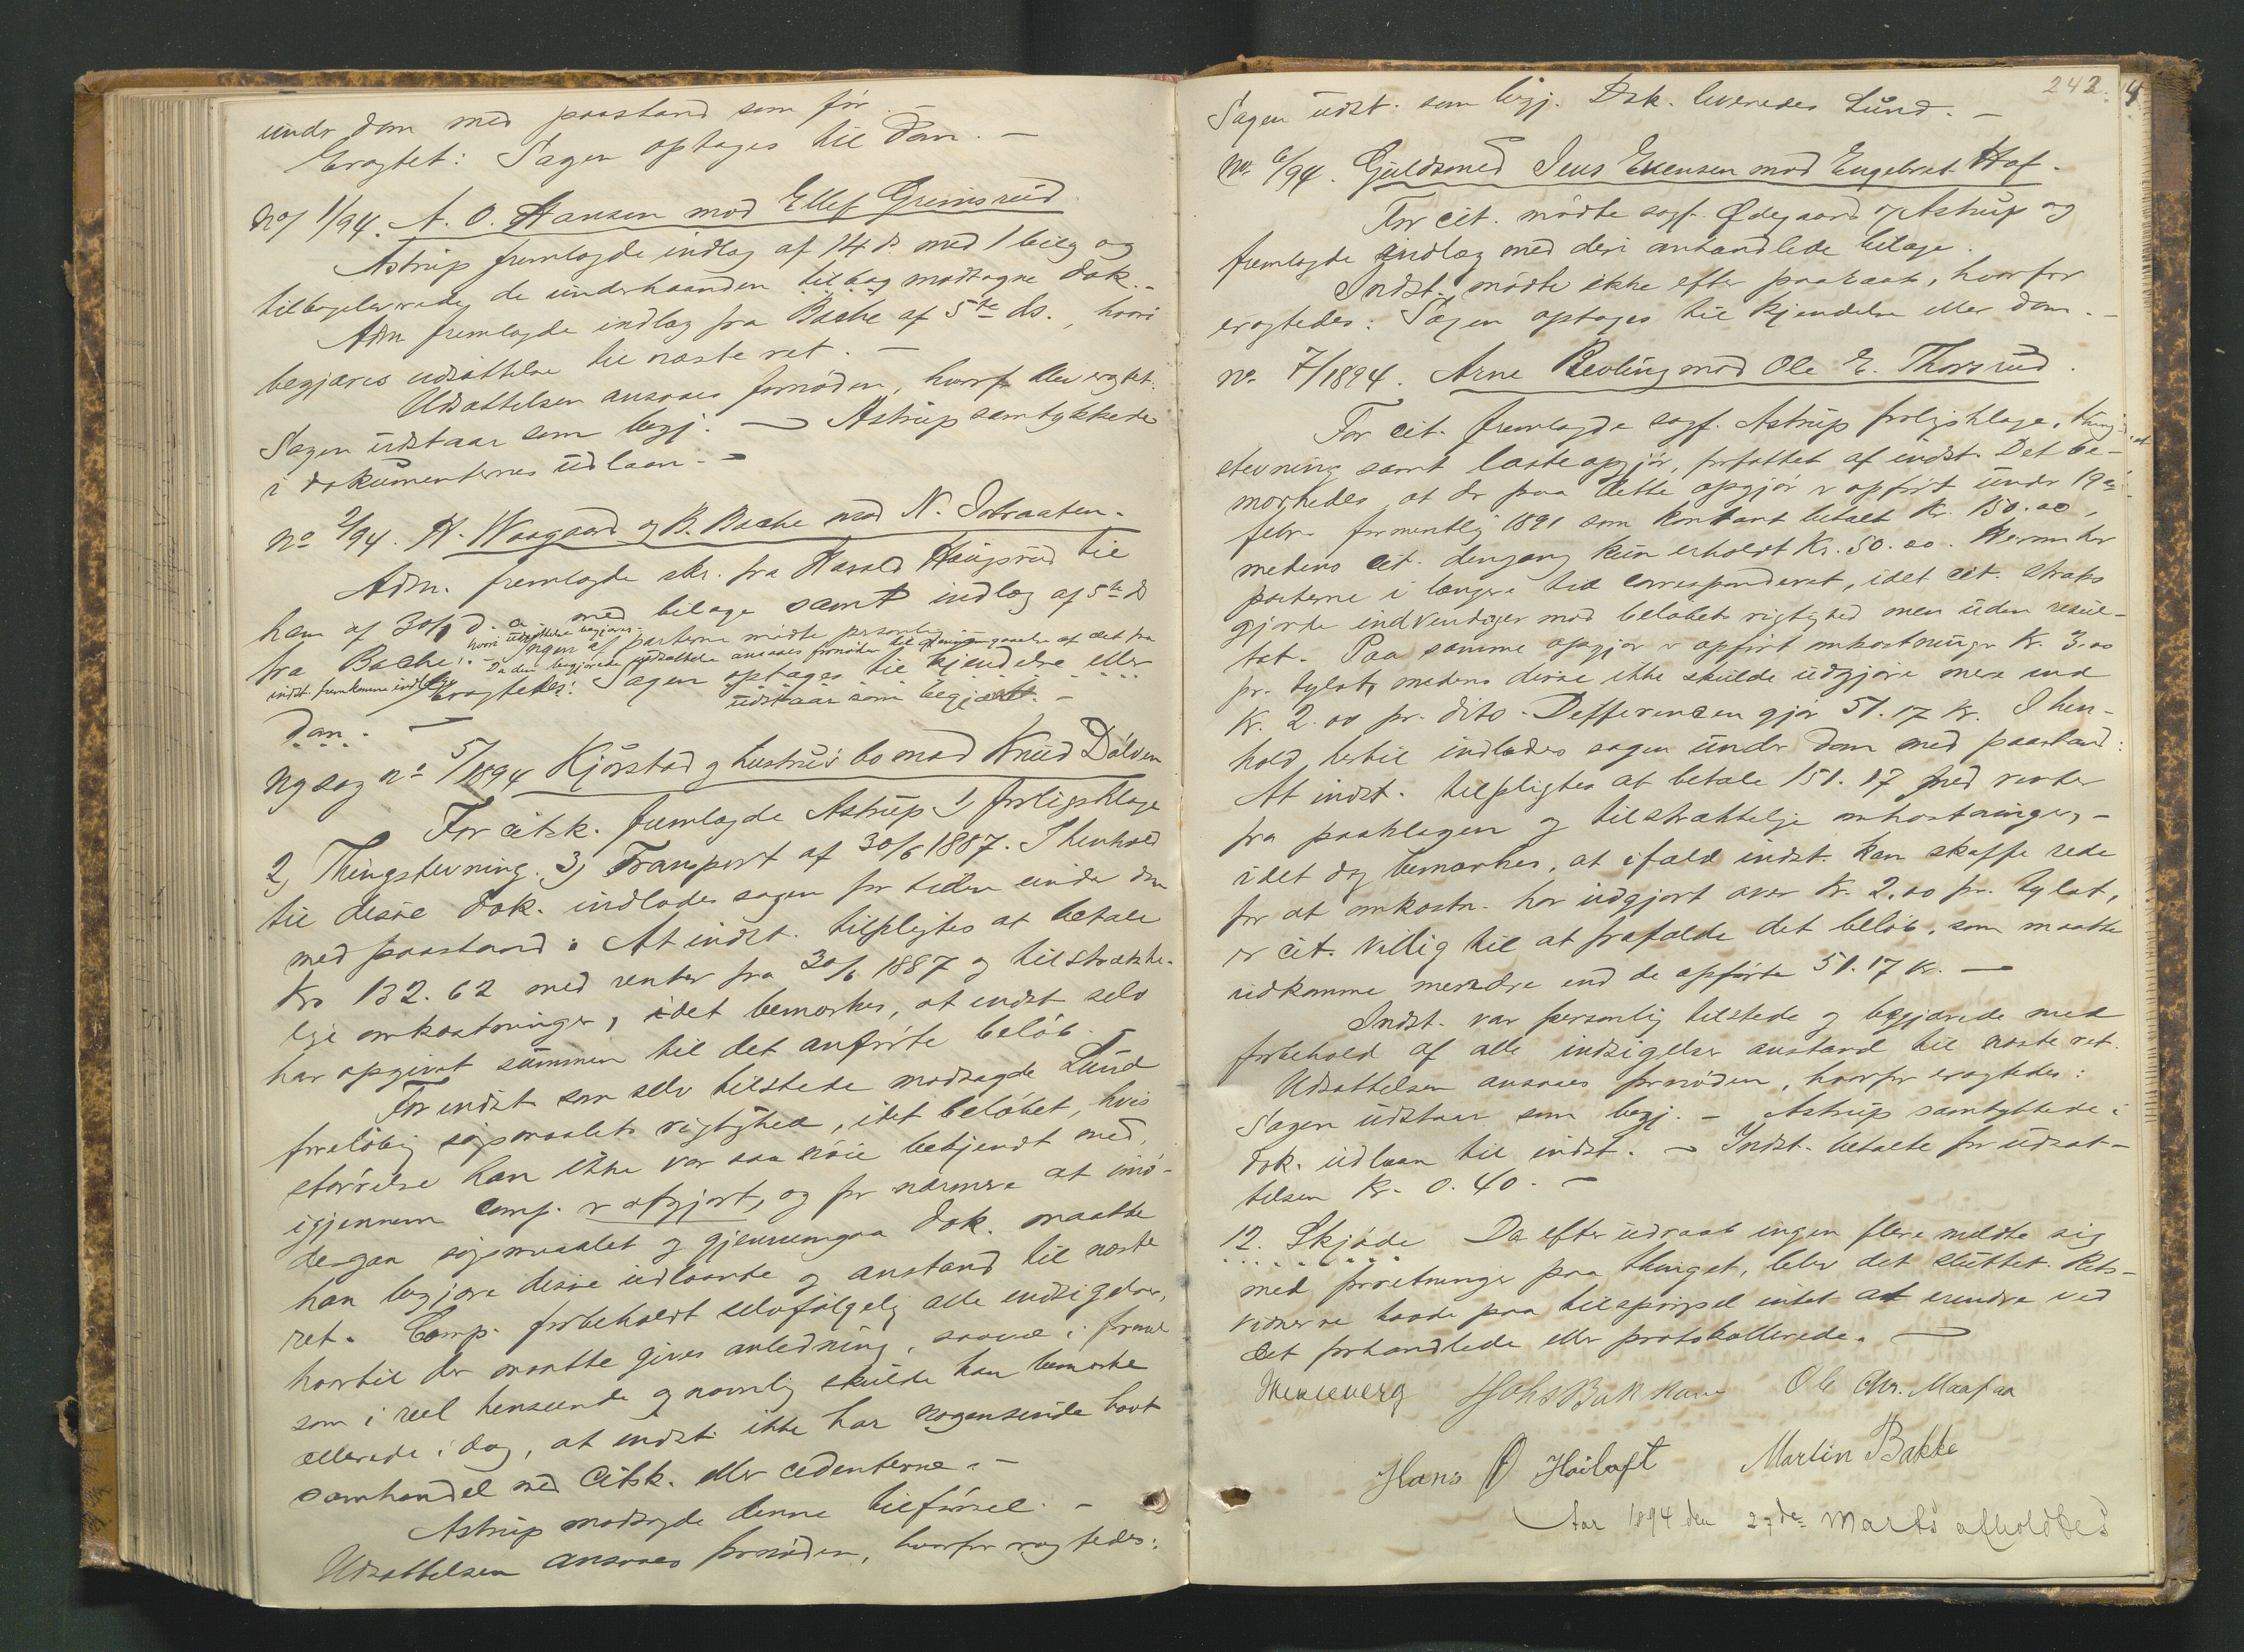 under dom med paastand som før. —
Eragtet: Sagen optages til Dom. —
No 1/94. A. O. Hansen mod Ellef Grimsrud.
Astrup fremlagde indlæg af 14 ds med 1 bilag og
tilbageleverede de underhaanden tilbag modtagne dok. —
Adm fremlagde indlæg fra Bache af 5te ds., hvori
begjæres udsættelse til næste ret. —
Udsættelsen ansaaes fornøden, hvorfor blev eragtet:
Sagen udstaar som begj. — Astrup samtykkede
i dokumenternes udlaan. —
No 2/94. H. Waagaard og B. Bache mod N. Jobraaten.
Adm. fremlagde skr. fra Harald Haugsrud til
ham af 30/1 d. a. med bilage samt indlæg af 5te ds
fra Bache, hvori udsættelse begjæres. — Ingen af parterne mødte personlig
Da den begjærede udsættelse ansaaes fornøden til af det fra
indst. fremkomne indlæg
Eragtedes: Sagen optages til kjendelse eller
udstaar som begjært. —
Dom. —
Ny sag No 5/1894 Kjørstad og Lustrus bo mod Knud Dølven
For citsk. fremlagde Astrup 1) forligsklage
2) Thingstevning. 3) Transport af 30/6 1887. I henhold
til disse dok. indlodes sagen for tiden under dom
med paastand: At indst. tilpligtes at betale
Kr. 132.62 med renter fra 30/6 1887 og tilstrække-
lige omkostninger, idet bemærkes, at indst selv
har opgivet summen til det anførte beløb. —
For indst som selv tilstede modsagde Lund
foreløbig søgsmaalets rigtighed, idet beløbet, hvis
størrelse han ikke var saa nøie bekjendt med,
igjennem Comp. er afgjort, og for nærmere at imø-
degaa søgsmaalet og gjennemgaa dok. maatte
han begjære disse udlaante og anstand til næste
ret. Comp. forbeholdt selvfølgelig alle indsigelser,
hvortil der maatte gives anledning, saavel i formel
som i reel henseende og navnlig skulde han bemærke
allerede idag, at indst. ikke har nogensinde havt
samhandel med Citsk. eller cedenterne. —
Astrup modsagde denne tilførsel. —
Udsættelsen ansaaes fornøden, hvorfor eragtedes:
242.
Sagen udst. som begj. Dok. leveredes Lund. —
No 6/94. Guldsmed Jens Evensen mod Engebret Hof.
For cit. mødte sagf. Ødegaard og Astrup og
fremlagde indlæg med deri anhandlede bilage.
Indst. mødte ikke efter paaraab, hvorfor
eragtedes: Sagen optages til kjendelse eller dom. —
No 7/1894. Arne Revling mod Ole E. Thorsrud.
For cit. fremlagde sagf. Astrup forligsklage, thing-
stevning samt lasteopgjør, forfattet af indst. Det be-
mærkedes, at der paa dette opgjør er opført under 19de
febr. formentlig 1891 som kontant betalt Kr. 150.00,
medens cit. dengang kun erholdt Kr. 50.00. Herom har
parterne i længere tid corresponderet, idet cit. straks
gjorde indvendinger mod beløbets rigtighed men uden resul-
tat. Paa samme opgjør er opført omkostninger Kr. 3.00
pr. tylvt, medens disse ikke skulde udgjøre mere end
Kr. 2.00 pr. dito. Defferencen gjør 51.17 Kr. I hen-
hold hertil indlodes sagen under Dom med paastand:
At indst. tilpligtes at betale 151.17 med renter
fra paaklagen og tilstrækkelige omkostninger, —
idet dog bemærkes, at ifald indst. kan skaffe rede
for at omkostn. har udgjort over Kr. 2.00 pr. tylvt,
er cit. villig til at frafalde det beløb, som maatte
vidkomme mere end de opførte 51.17 Kr. —
Indst. var personlig tilstede og begjærede med
forbehold af alle indsigelser anstand til næste ret.
Udsættelsen ansaaes fornøden, hvorfor eragtedes:
Sagen udstaar som begj. — Astrup samtykkede i
Dok. udlaan til indst. — Indst. betalte for udsæt-
telsen Kr. 0.40. —
12. Skjøde Da efter udraab ingen flere meldte sig
med forretninger paa thinget, blev det sluttet. Rets-
vidnerne havde paa tilspørgsel intet at erindre ved
det forhandlede eller protokollerede. —
Johs Bakkane Ole Chr. Maafaa
Hans Ø Høiloft Martin Bakke
Aar 1894 den 27de Marts afholdtes